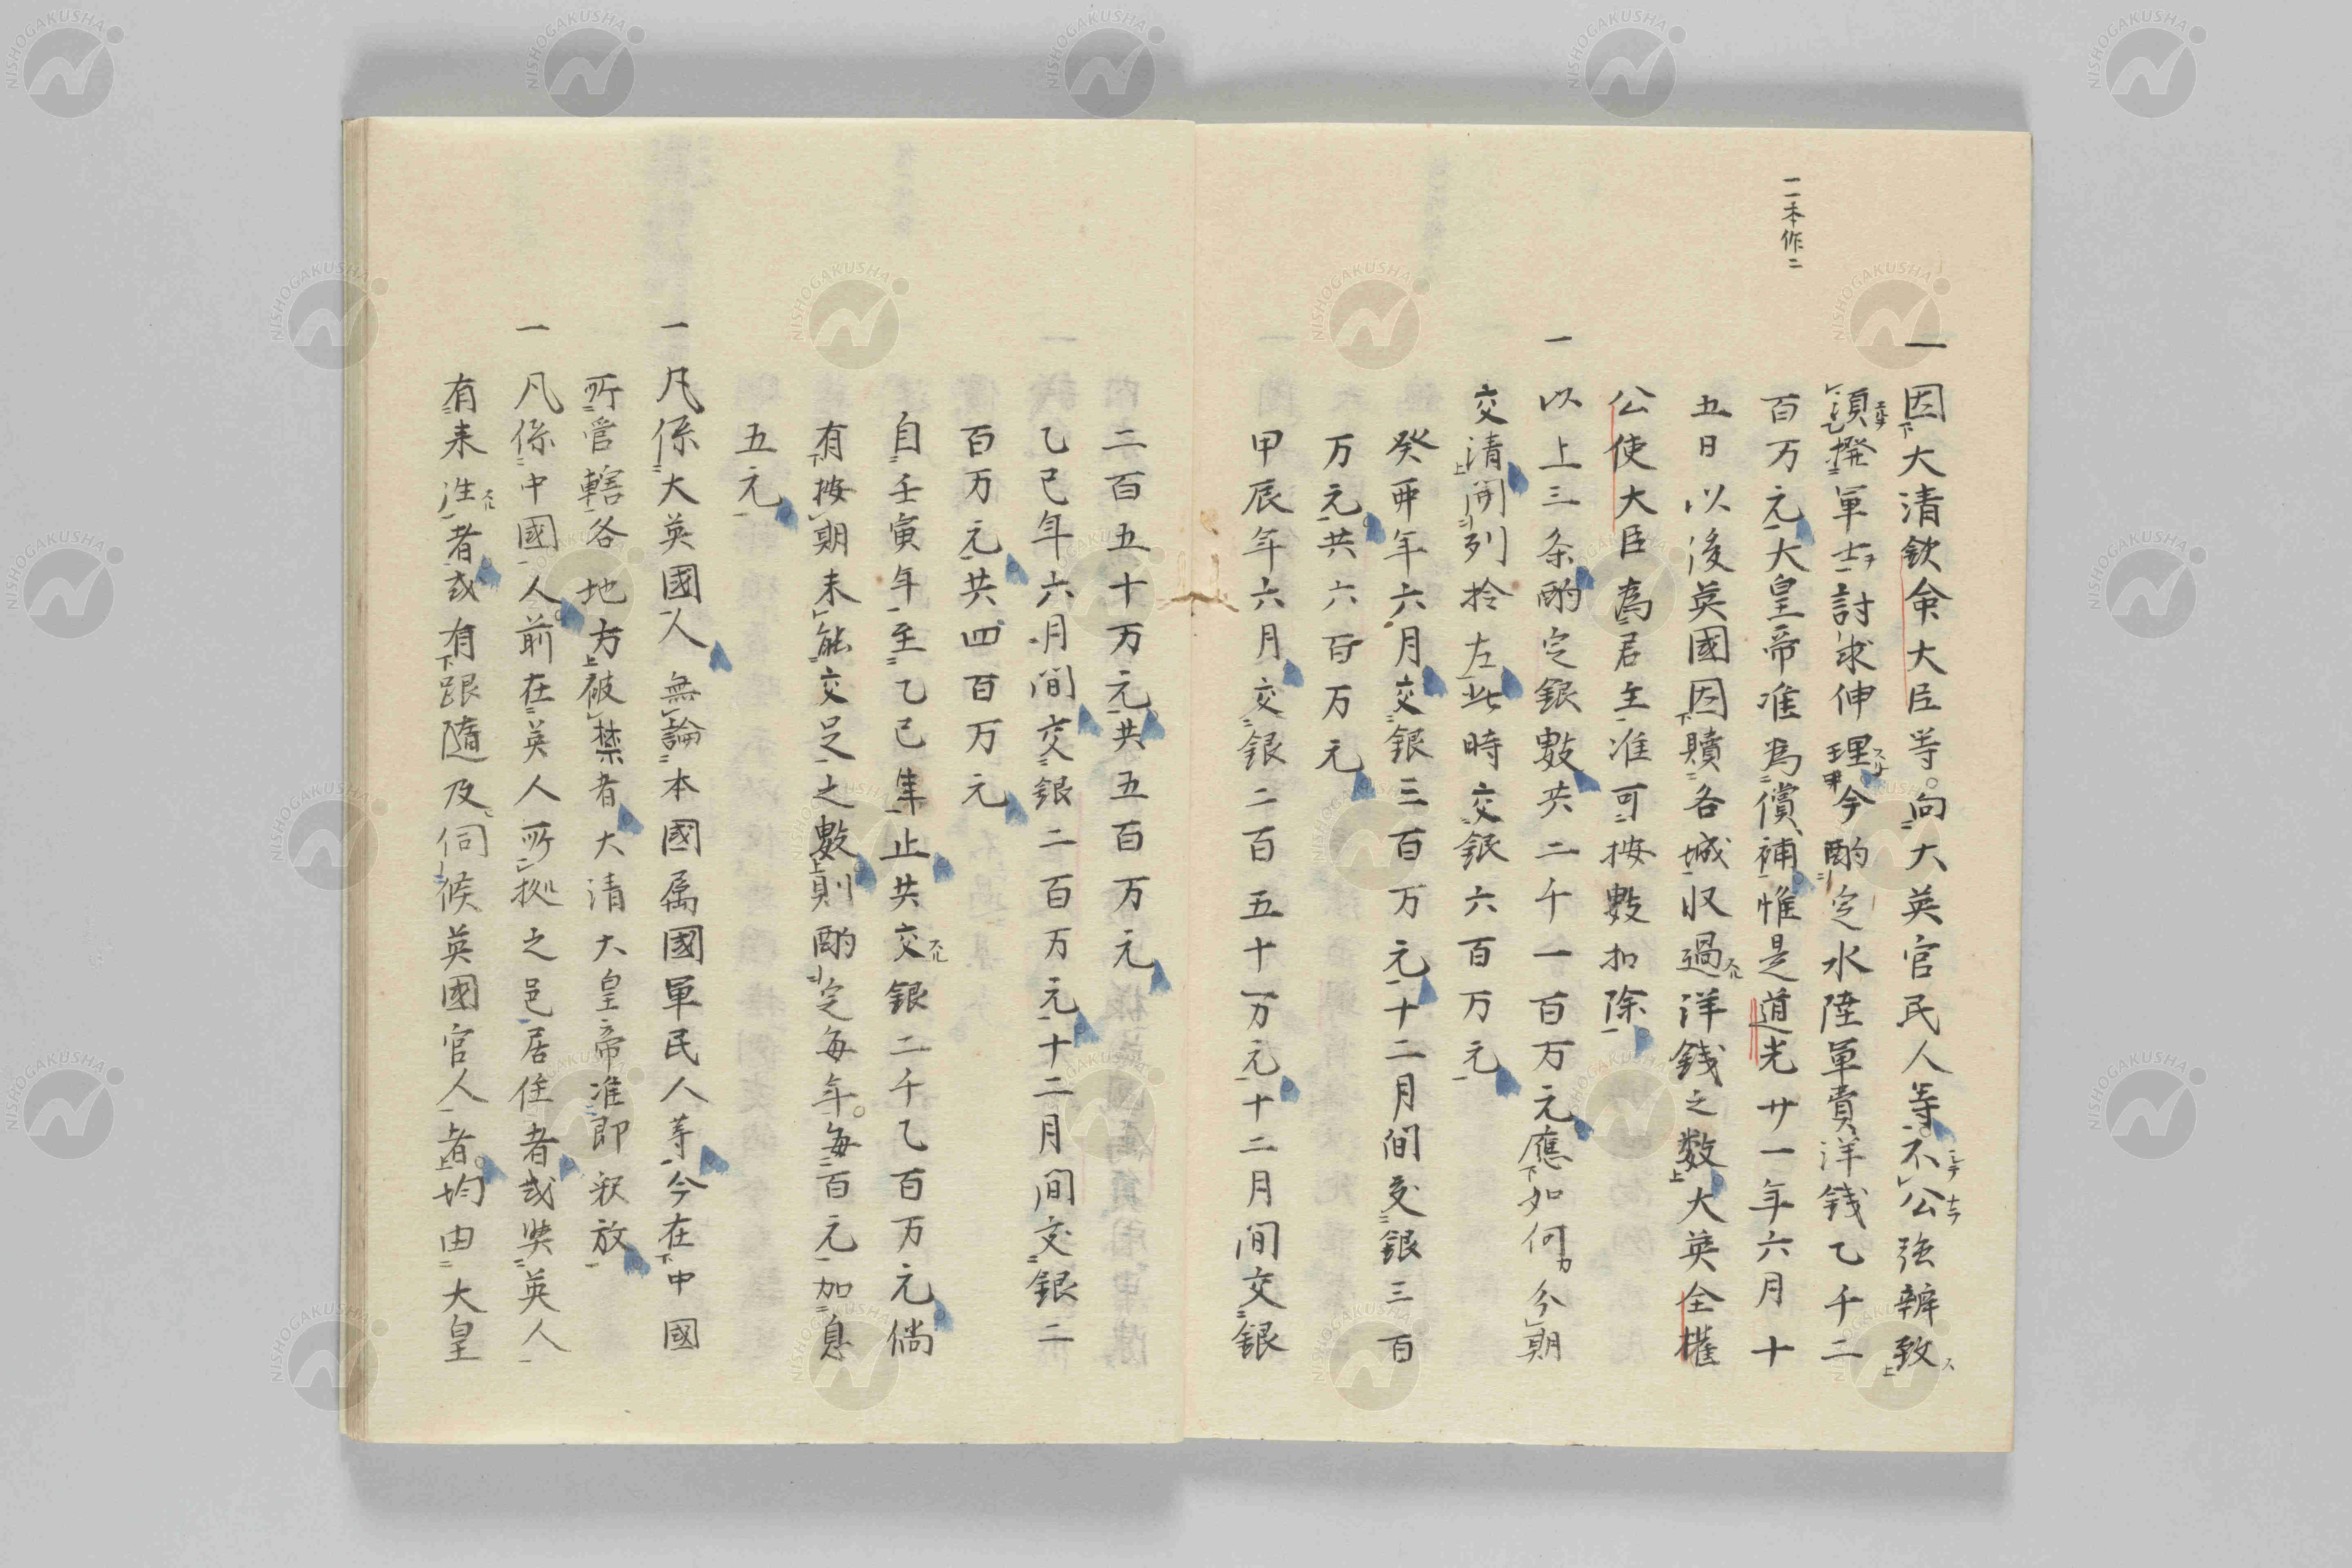 一本作二
一因大清欽命大臣等向大英官民人等不公強辦致
須撥軍士討求伸理今酌定水陸軍費洋銭乙千二
百万元大皇帝准為償補惟是道光廿一年六月十
五日以後英國因贖各城収過洋銭之数大英全權
公使大臣為君主准可按數扣除
一以上三条酌定銀數共二千一百万元應如何分期
交清開列於左此時交銀六百万元
癸亜年六月交銀三百万元十二月間交銀三百
万元共六百万元
甲辰年六月交銀二百五十万元十二月間交銀
二百五十万元共五百万元
乙已年六月間交銀二百万元十二月間交銀二
百万元共四百万元
自壬寅年至乙已年止共交銀二千乙百万元倘
有按期未能交足之數則酌定毎年毎百元加息
五元
一凡係大英國人無論本國属國軍民人等今在中國
所管轄各地方被禁者大清大皇帝准即釈放
一凡係中國人前在英人所拠之邑居住者或與英人
有来往者或有跟随及伺候英國官人者均由大皇
NISHOGAKUSHA